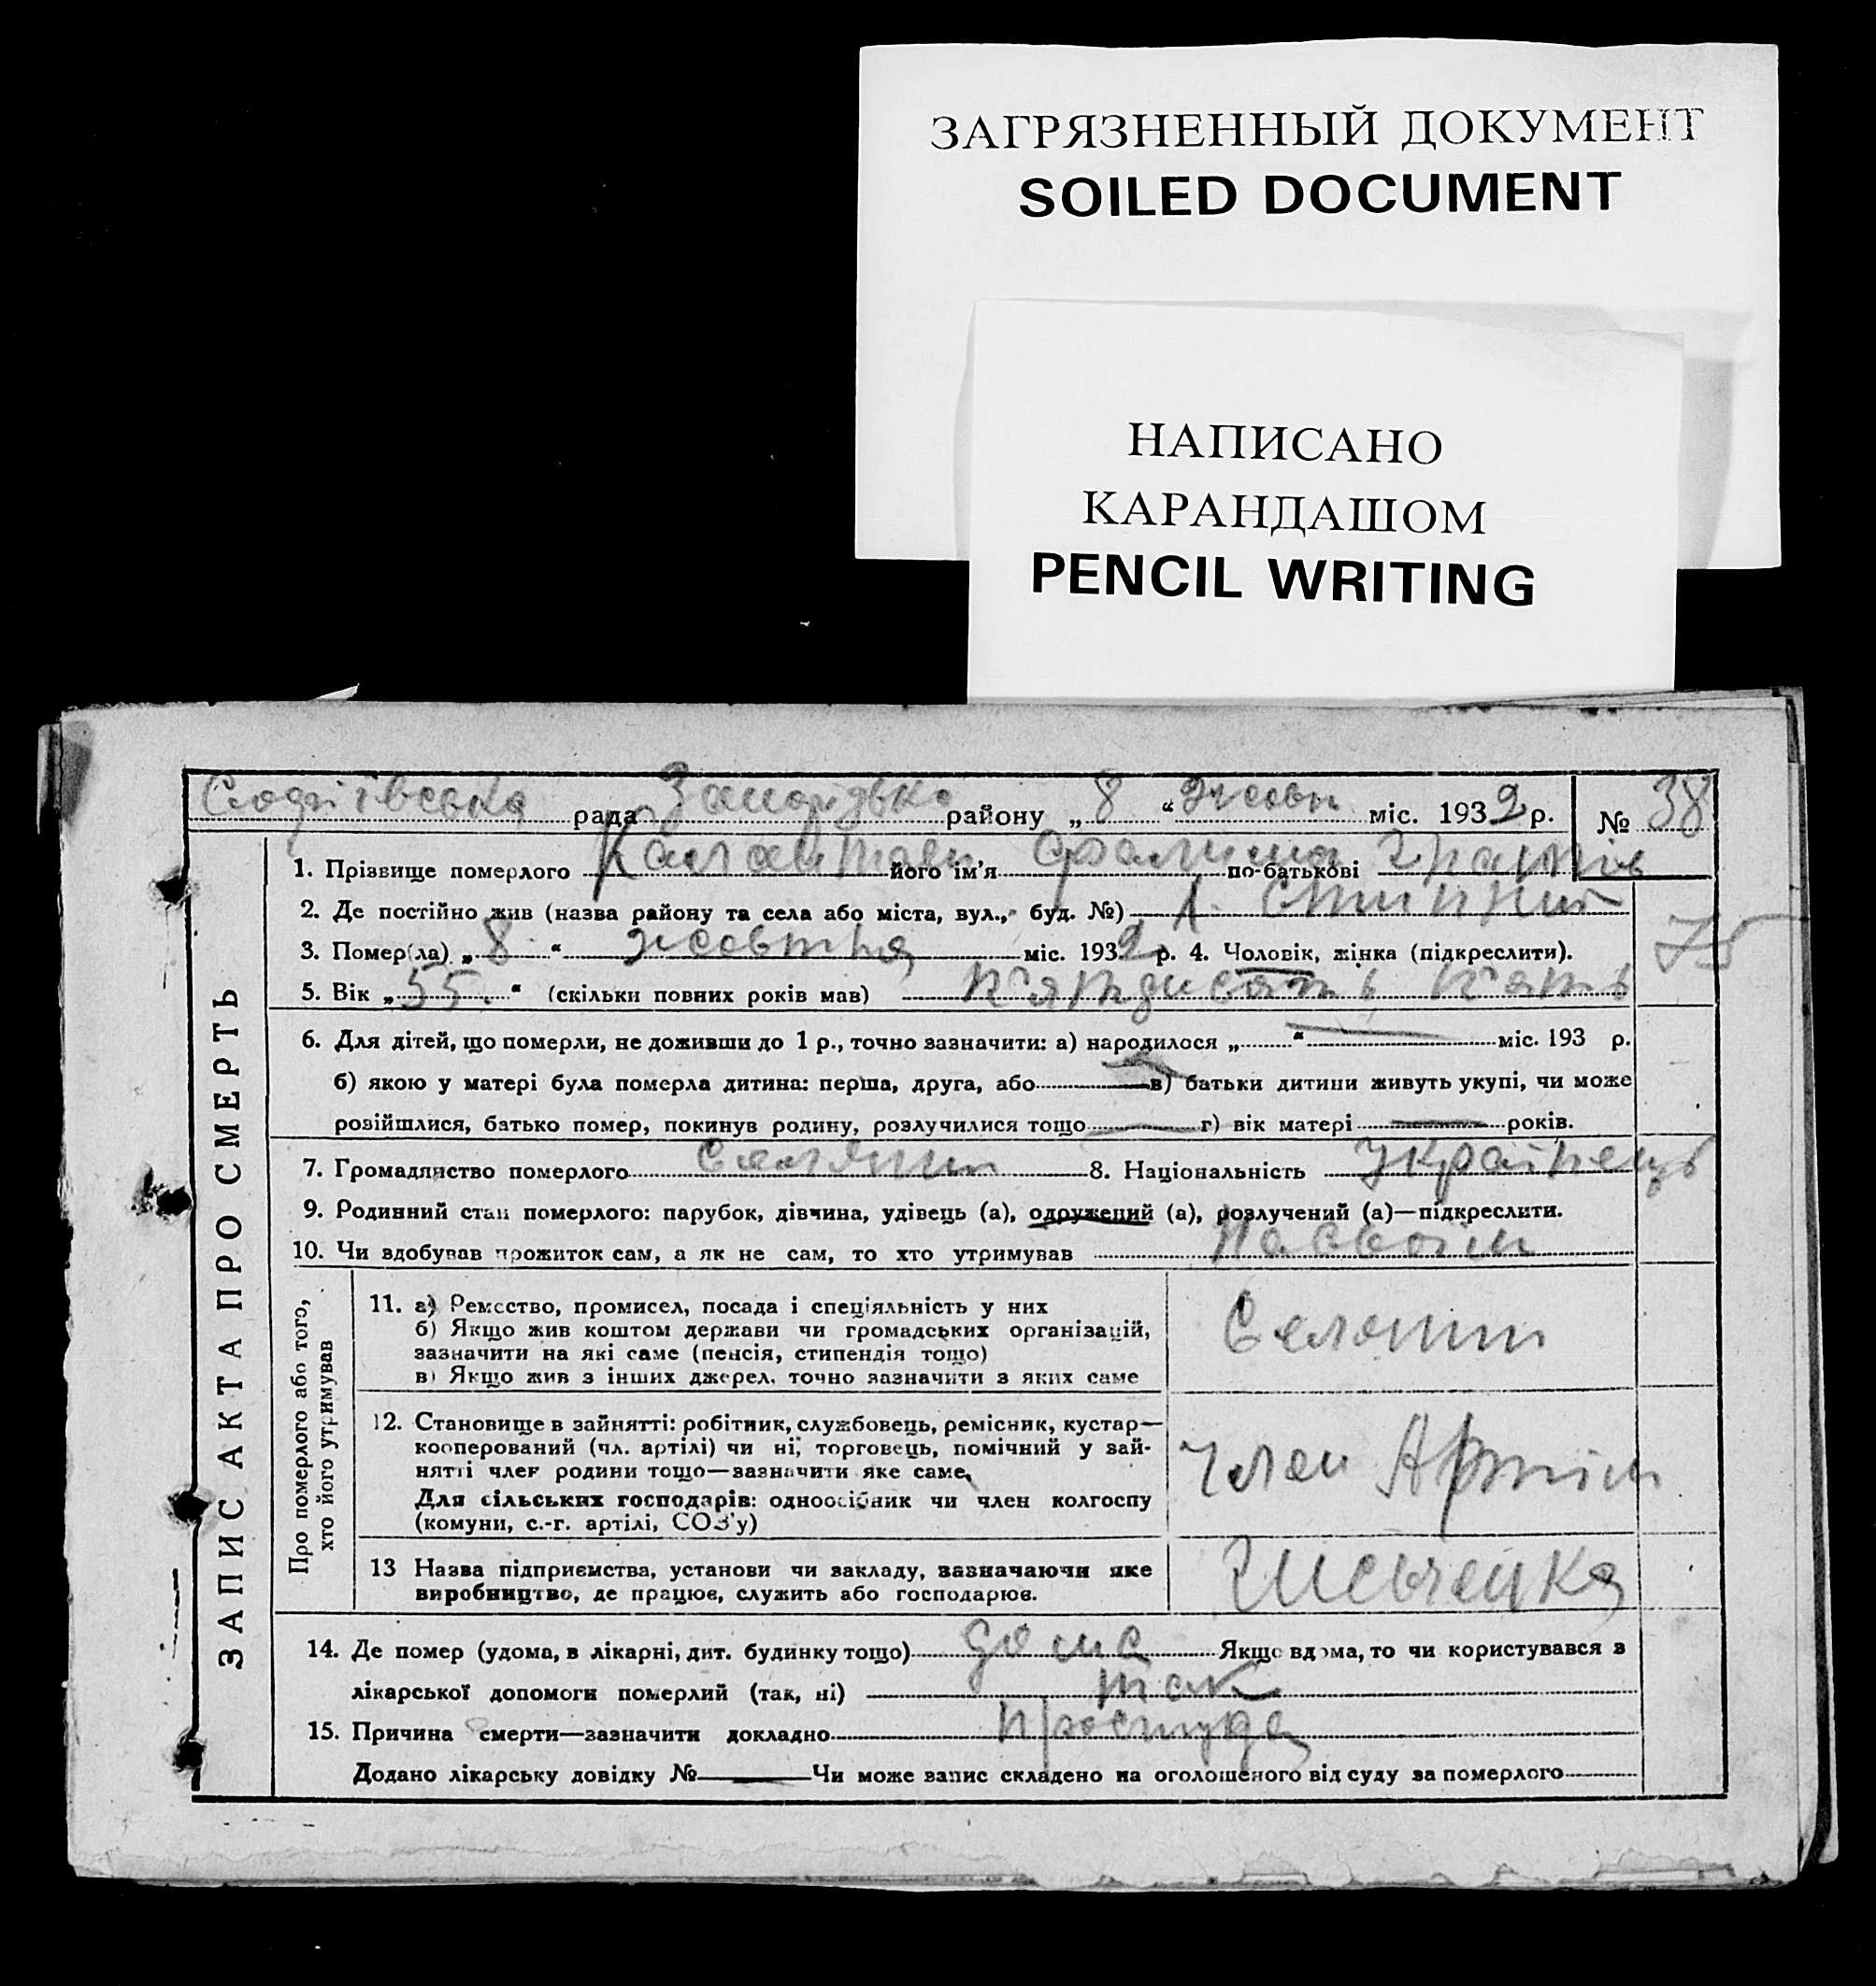 ЗАГРЯЗНЕННЫЙ ДОКУМЕНТ
SOILED DOCUMENT
НАПИСАНО
КАРАНДАШОМ
PENCIL WRITING
рада району „ 8 “ жовт міс. 1932 р. № 38
ЗАПИС АКТА ПРО СМЕРТЬ
1. Прізвище померлого його ім'я по-батькові
2. Де постійно жив (назва району та села або міста, вул., буд. №)
3. Помер(ла) „ 8 “ жовтня міс. 1932 р. 4. Чоловік, жінка (підкреслити).
75
5. Вік „ 55. “ (скільки повних років мав) п'ятдисать пять
6. Для дітей, що померли, не доживши до 1 р., точно зазначити: а) народилося „ “ міс. 193 р.
б) якою у матері була померла дитина: перша, друга, або в) батьки дитини живуть укупі, чи може
розійшлися, батько помер, покинув родину, розлучилися тощо г) вік матері років.
7. Громадянство померлого Селянин 8. Національність Українець
9. Родинний стан померлого: парубок, дівчина, удівець (а), одружений (а), розлучений (а)—підкреслити.
10. Чи здобував прожиток сам, а як не сам, то хто утримував
Про померлого або того,
хто його утримував
11. а) Ремество, промисел, посада і спеціяльність у них
б) Якщо жив коштом держави чи громадських організацій,
зазначити на які саме (пенсія, стипендія тощо)
в) Якщо жив з інших джерел, точно зазначити з яких саме
Селянин
12. Становище в зайнятті: робітник, службовець, ремісник, кустар—
кооперований (чл. артілі) чи ні, торговець, помічний у зай-
нятті член родини тощо—зазначити яке саме
Для сільських господарів: одноосібник чи член колгоспу
(комуни, с.-г. артілі, СОЗ'у)
Член Артіли
13 Назва підприємства, установи чи закладу, зазначаючи яке
виробництво, де працює, служить або господарює.
14. Де помер (удома, в лікарні, дит. будинку тощо) дома Якщо вдома, то чи користувався з
лікарської допомоги померлий (так, ні) так
15. Причина смерти—зазначити докладно простуда
Додано лікарську довідку № Чи може запис складено на оголошеного від суду за померлого